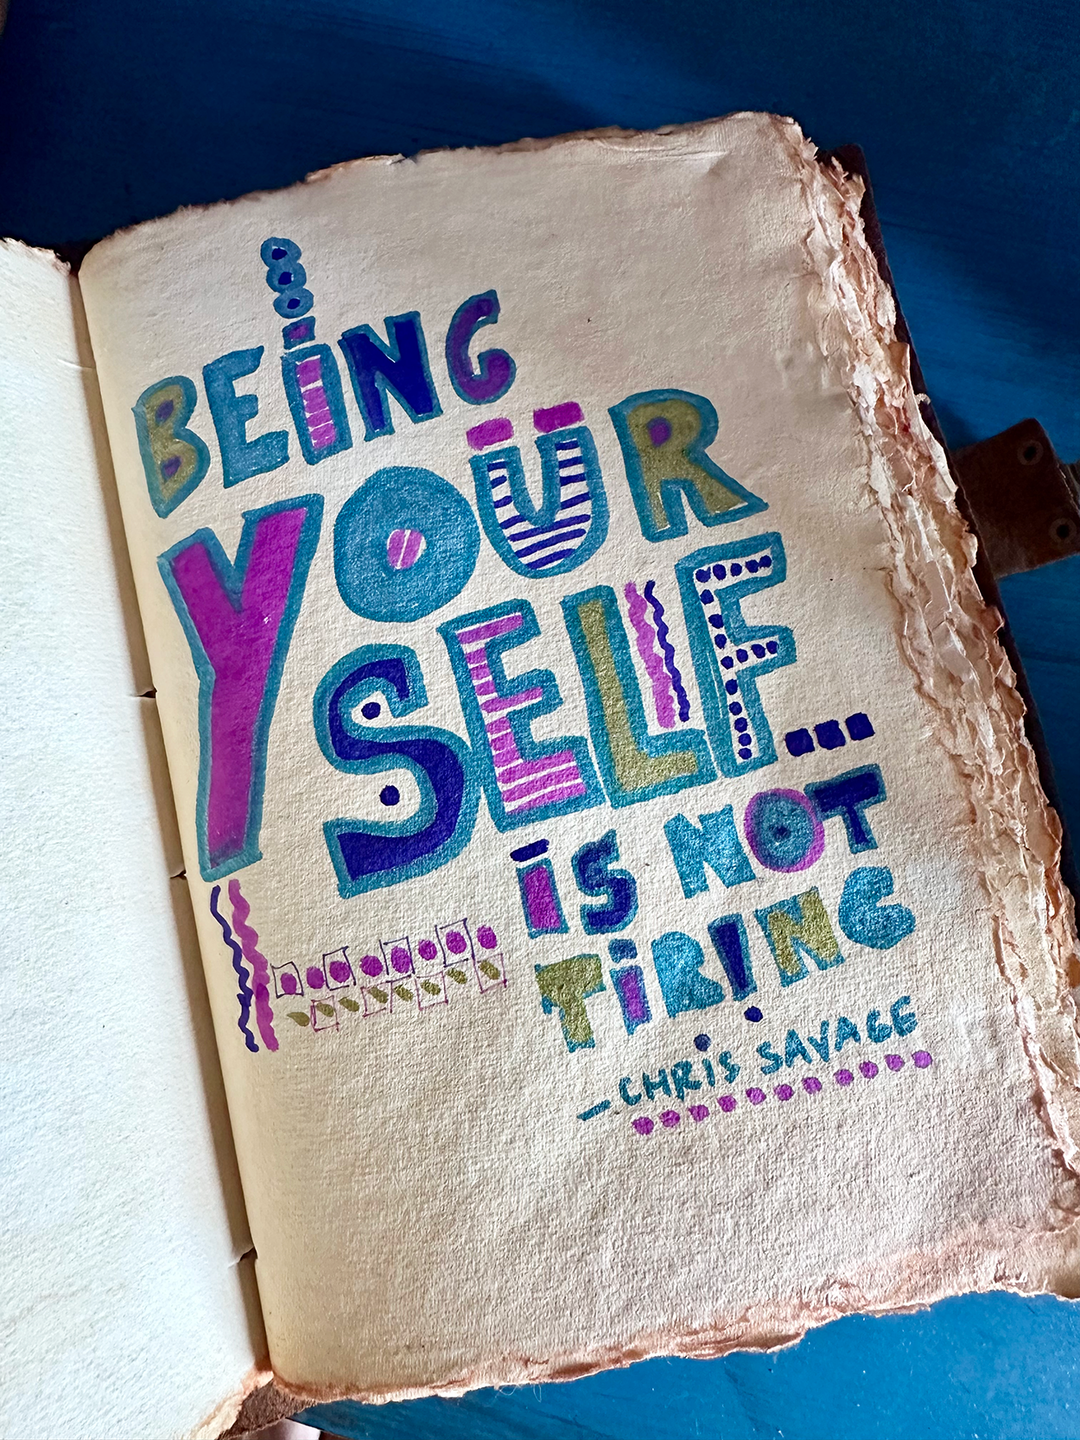 BEiNG
YOÜR
SELF...
iS NOT
TiRiNG
_CHRiS SAVAGE